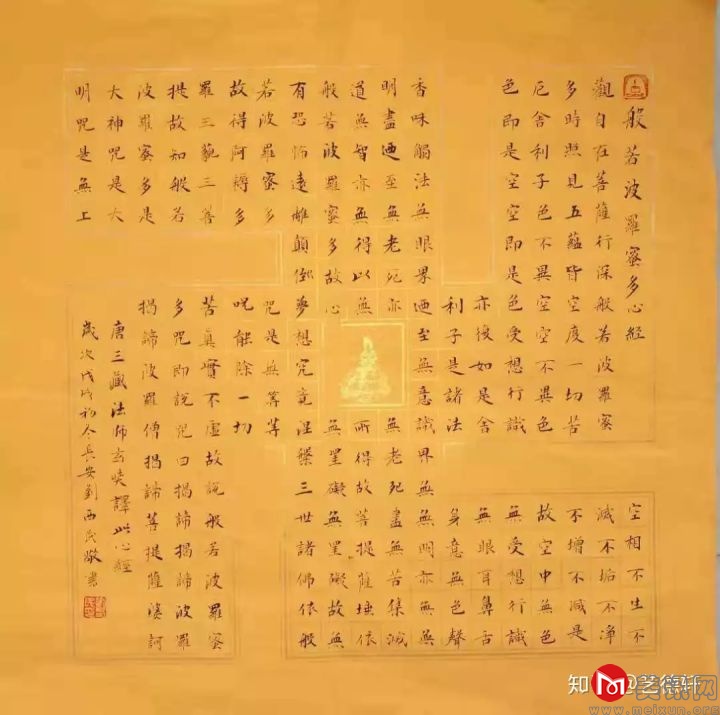 般若波羅蜜多心經
觀自在菩薩行深般若波羅蜜
多時照見五蘊皆空度一切苦
厄舍利子色不異空空不異色
色即是空空即是色受想行識
亦復如是舍
利子是諸法
空相不生不
滅不垢不淨
不增不減是
故空中無色
無受想行識
無眼耳鼻舌
身意無色聲
香味觸法無眼界迺至無意識界無無明亦無無
明盡迺至無老死亦無老死盡無苦集滅
道無智亦無得以無所得故菩提薩埵依
般若波羅蜜多故心無罣礙無罣礙故無
有恐怖遠離顛倒夢想究竟涅槃三世諸佛依般
若波羅蜜多
故得阿耨多
羅三藐三菩
提故知般若
波羅蜜多是
大神咒是大
明咒是無上
咒是無等等
呪能除一切
苦真實不虛故説般若波羅蜜
多咒即説咒曰揭諦揭諦波羅
揭諦波羅僧揭諦菩提薩婆訶
唐三藏法師玄奘譯此心經
歲次戊戌初冬長安劉西民敬書
知 @艺德轩
www.meixun.org